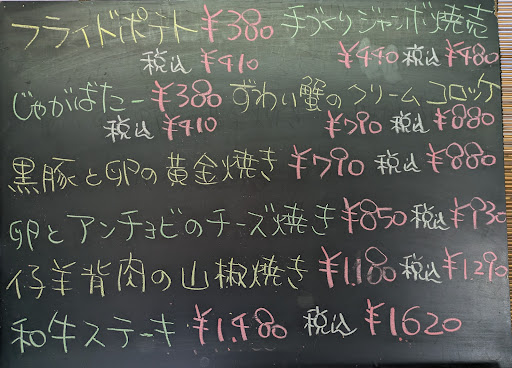 フライドポテト ¥380 手づくりジャンボ焼売
税込 ¥410 ¥440 税込 ¥480
じゃがばたー ¥380 ずわい蟹のクリームコロッケ
税込 ¥410 ¥790 税込 ¥880
黒豚と卵の黄金焼き ¥790 税込 ¥880
卵とアンチョビのチーズ焼き ¥850 税込 ¥930
仔羊背肉の山椒焼き ¥1.180 税込 ¥1.290
和牛ステーキ ¥1.480 税込 ¥1.620